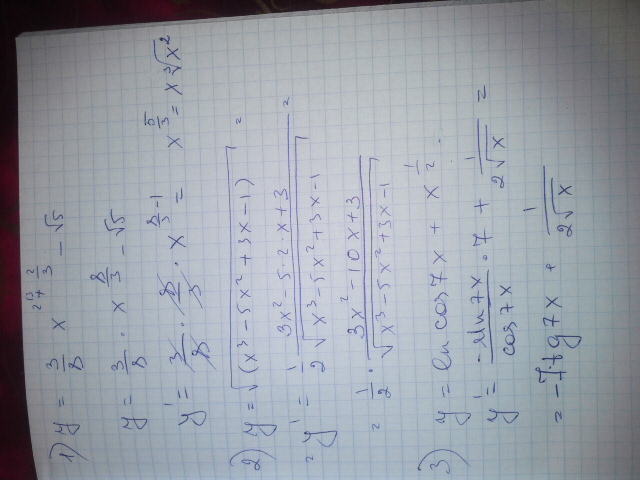 1) y = 3/8 x^2 2/3 - √5
y = 3/8 · x^8/3 - √5
y' = 3/8 · 8/3 · x^8/3-1 = x^5/3 = x ∛x²
2) y = √(x³ - 5x² + 3x - 1) =
= y' = 3x² - 5·2·x + 3 / 2√x³ - 5x² + 3x - 1 =
= 1/2 · 3x² - 10x + 3 / √x³ - 5x² + 3x - 1
3) y = ln cos 7x + x^1/2 .
y' = - sin 7x / cos 7x · 7 + 1 / 2√x =
= - 7 tg 7x + 1 / 2√x